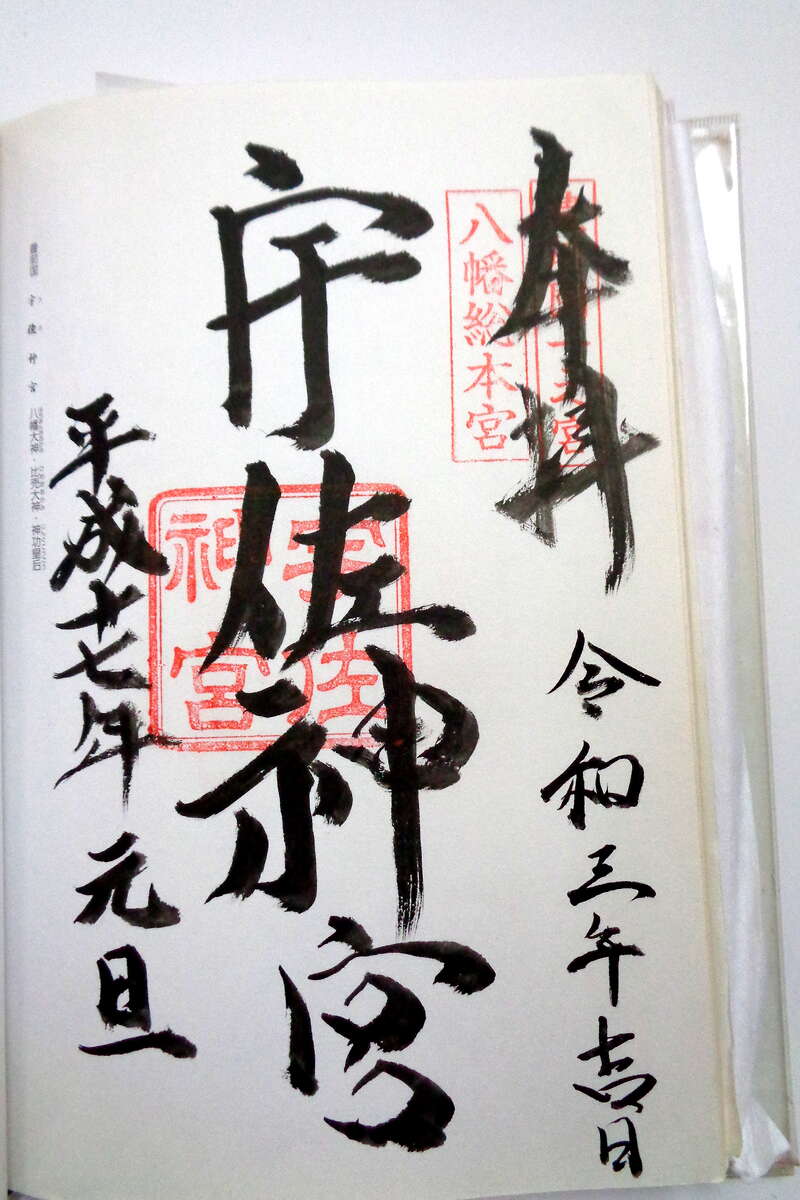 奉拝
令和三年吉日
八幡総本宮
宇佐神宮
宇佐神宮
平成十七年元旦
豊前国 宇佐神宮 八幡大神・比売大神・神功皇后